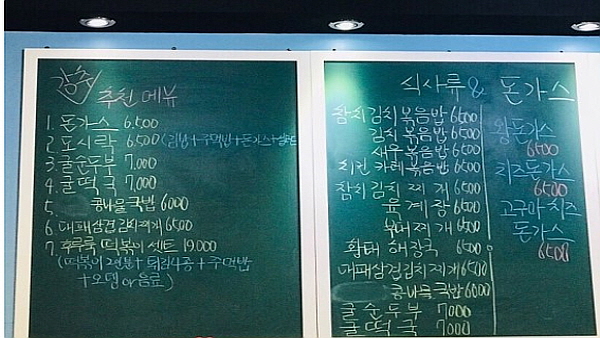 강추
추천 메뉴
1. 돈가스 6.500
2. 도시락 6.500 (김밥+주먹밥+돈가스+샐러드
3. 굴순두부 7,000
4. 굴떡국 7,000
5. 콩나물국밥 6000
6. 대패삼겹김치찌개 6500
7. 후루룩 떡볶이 센트 19.000
(떡볶이 2인분+튀김4종+주먹밥
+오뎅 or 음료)
식사류 & 돈가스
참치김치볶음밥 6500
김치볶음밥 6500
새우볶음밥 6500
치킨카레볶음밥 6500
참치김치찌개 6500
육개장 6500
부대찌개 6500
황태해장국 6500
대패삼겹김치찌개 6500
콩나물국밥 6000
굴순두부 7000
굴떡국 7000
왕돈가스
6500
치즈돈가스
6500
고구마치즈
돈가스
6500